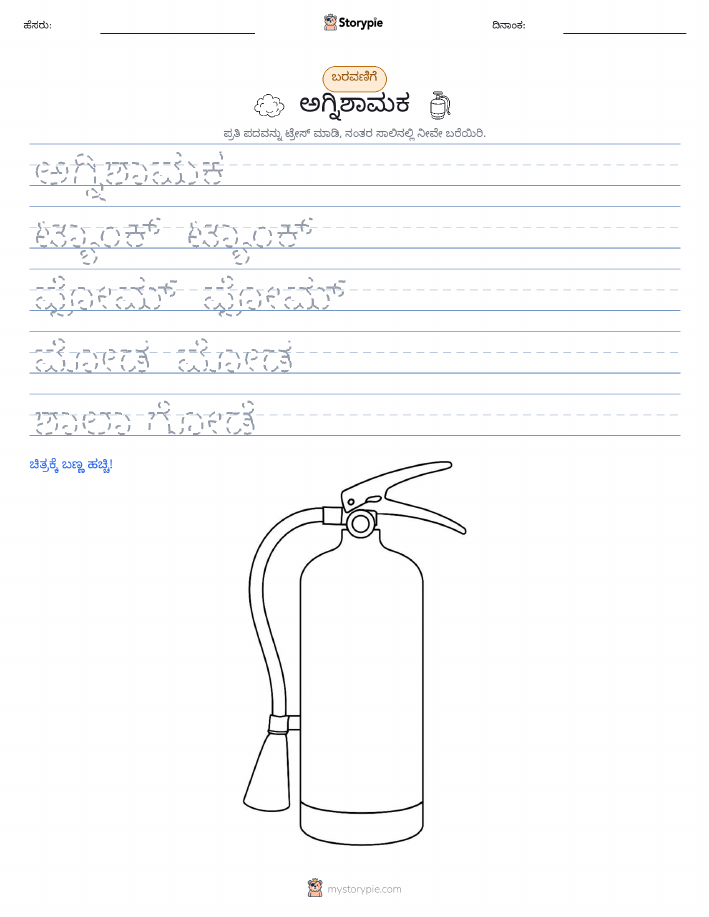 ಹೆಸರು:
Storypie
ದಿನಾಂಕ:
ಬರವಣಿಗೆ
ಅಗ್ನಿಶಾಮಕ
ಪ್ರತಿ ಪದವನ್ನು ಟ್ರೇಸ್ ಮಾಡಿ, ನಂತರ ಸಾಲಿನಲ್ಲಿ ನೀವೇ ಬರೆಯಿರಿ.
ಅಗ್ನಿಶಾಮಕ
ಟ್ಯಾಂಕ್ ಟ್ಯಾಂಕ್
ಫೋಮ್ ಫೋಮ್
ಮೋಡ ಮೋಡ
ಶಾಲಾ ಗೋಡೆ
ಚಿತ್ರಕ್ಕೆ ಬಣ್ಣ ಹಚ್ಚಿ!
mystorypie.com